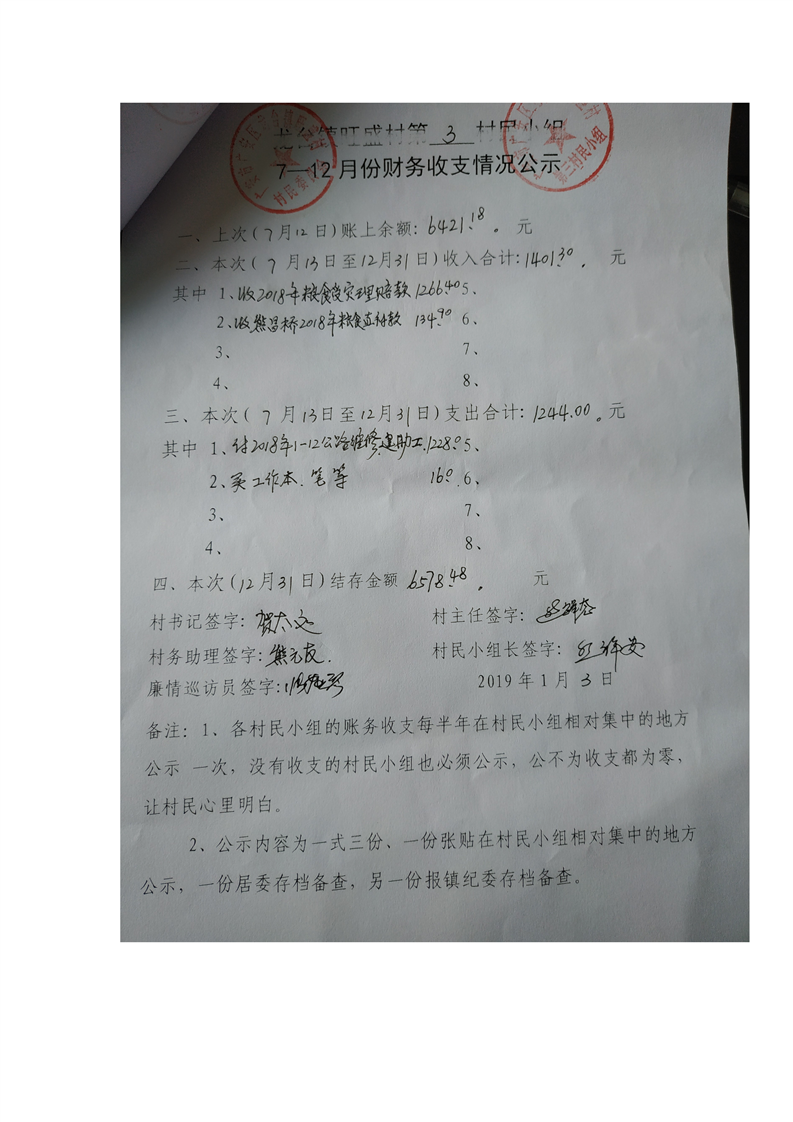 龙台镇旺盛村第 3 村民小组
7—12月份财务收支情况公示
一、上次(7月12日)账上余额:6421.18。元
二、本次(7月13日至12月31日)收入合计:1401.30.元
其中 1、收2018年粮食受灾理赔款1266.40 5、
2、收熊昌桥2018年粮食直补款 134.90 6、
3、 7、
4、 8、
三、本次(7月13日至12月31日)支出合计:1244.00。元
其中 1、付2018年1-12公路维修建助工1228.0 5、
2、买工作本.笔等 16.0 6、
3、 7、
4、 8、
四、本次(12月31日)结存金额 6578.48。元
村书记签字: 村主任签字:
村务助理签字:熊元友. 村民小组长签字:
廉情巡访员签字: 2019年1月3日
备注:1、各村民小组的账务收支每半年在村民小组相对集中的地方
公示 一次,没有收支的村民小组也必须公示,公不为收支都为零,
让村民心里明白。
2、公示内容为一式三份、一份张贴在村民小组相对集中的地方
公示,一份居委存档备查,另一份报镇纪委存档备查。
村民委员会
第三村民小组